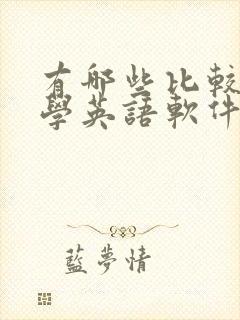 有哪些比較
學英語軟件
藍夢情